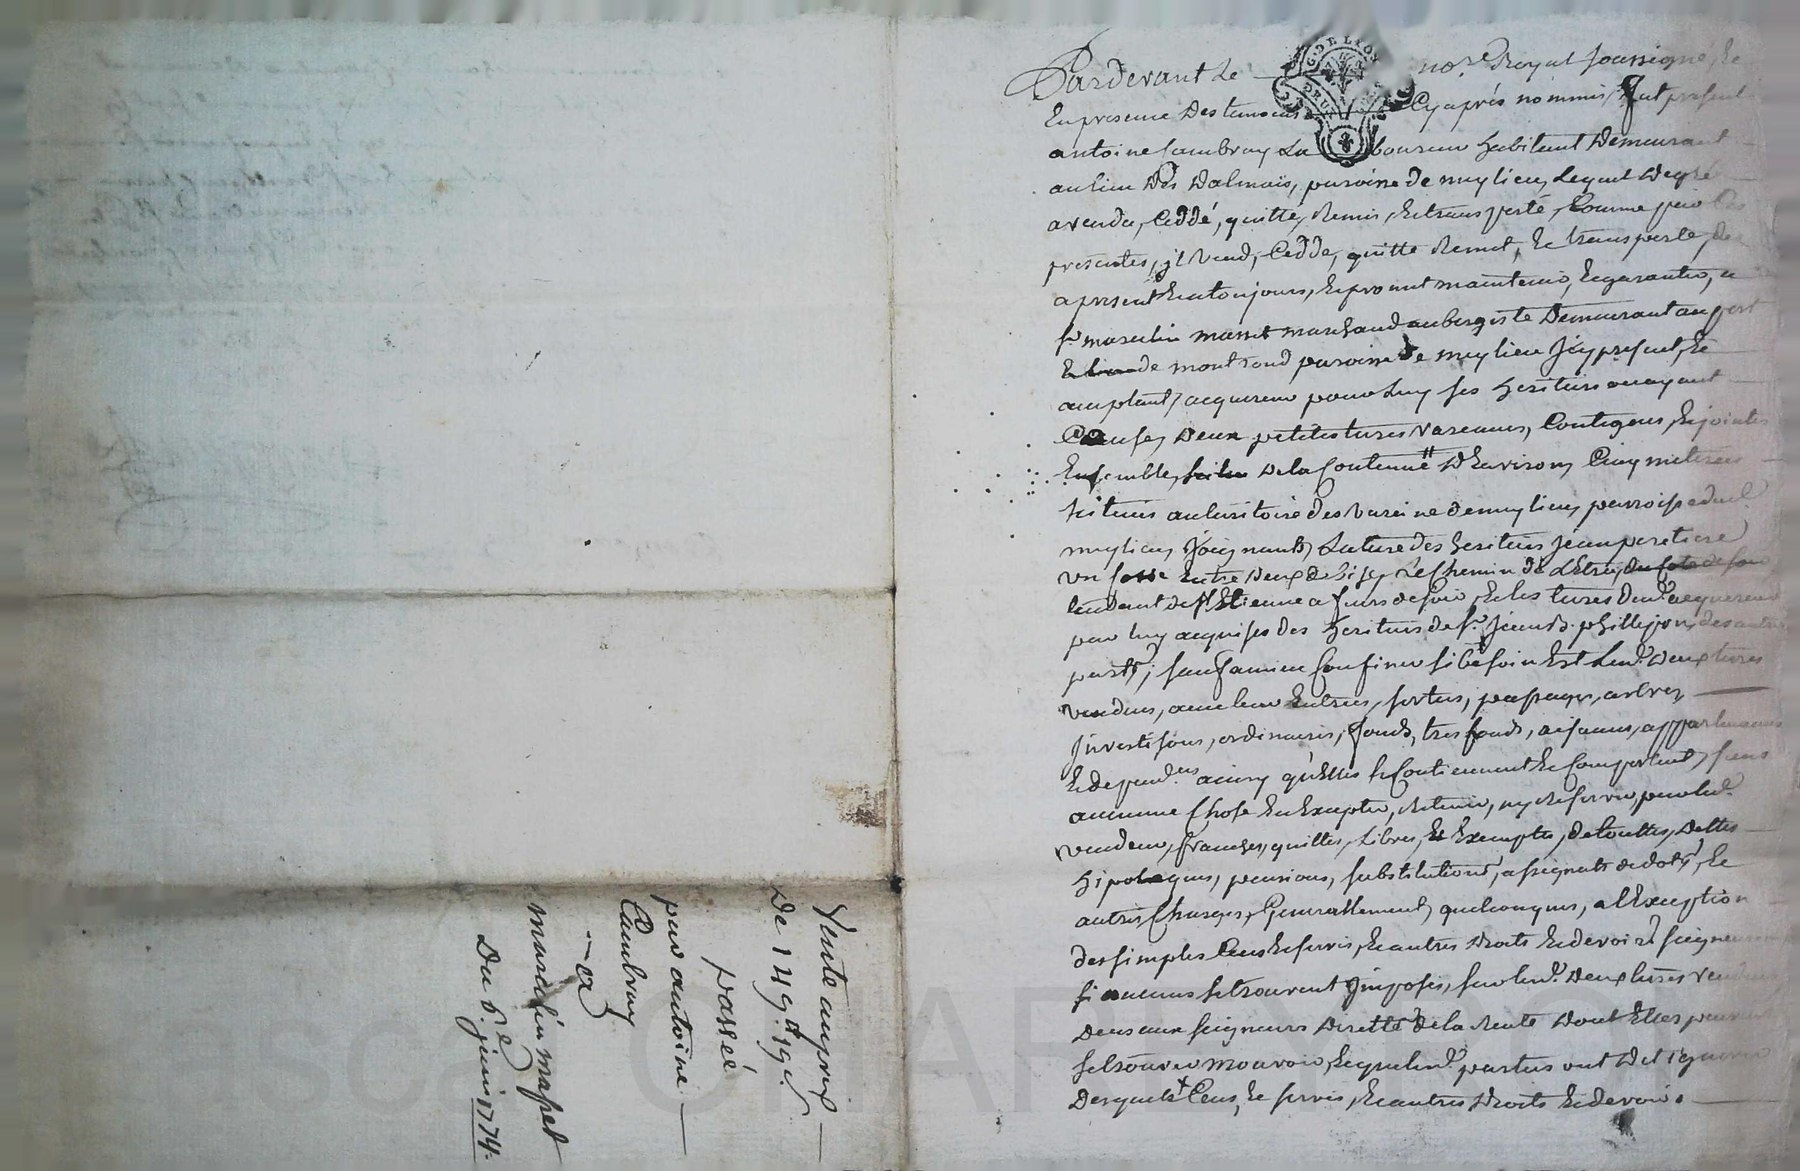 Pardevant le no.re Royal soussigné, Et
En presence Des temoins Cy après nommés, fut present
antoine Cambray La boureur habitant Demeurant
au lieu Des Dalmais, paroisse de meylieu, Lequel De gré
a vendu, Ceddé, quitté, Remis, Et transporté, Comme par Ces
presentes, jl vend, Cedde, quitte Remet, Et transporte, des
a present Et a toujours, Et promet maintenir, Et garantir, a
sr. marcelin masset marchand aubergiste Demeurant au port
de montrond paroisse de meylieu Jcy present, Et
acceptant, acquereur pour Luy ses heritiers ou ayant
Cause, Deux petites terres varennes, Contigues, Et jointes
Ensemble, De la Contenue D'Environ, Cinq meterées
situées au territoire des Vareine de meylieu, parroisse dud.
meylieu, Joignants, La terre des heritiers Jean peretiere
un fossé Entre Deux de bize, Le Chemin de
tendant de st. Etienne a feurs de soir, Et les terres dud. acquereur
par luy acquises des heritiers de sr. Jean B. phillipon, des autres
parts, sauf a mieu Confiner si besoin Est Lesd. Deux terres
vendues, avec leur Entrées, sorties, passages, arbres
Jnvestisons, ordinaires, fonds, tres fonds, aisances, appartenances
Et depend.ces ainsy qu'Elles se Contiennent Et Comportent, sans
aucunne Chose En Excepter, Retenir, ny Reserver, par led.
vendeur, franches, quittes, Libres, Et Exemptes, de touttes, Dettes
hipoteques, pensions, substitutions, assignats de dots, Et
autres Charges, Generallement, quelconques, a l'Exception
des simples Cens Et servis, Et autres Droits Et devoirs seigneuriaux
si aucuns se trouvent Jmposés, sur lesd. Deux terres vendues
Deus aux seigneurs Directs De la Rente Dont Elles peuvent
se trouver mouvoir, Lesquelles parties ont Dit ignorer
Desquels Cens, Et servis, Et autres Droits Et devoirs
G. DE LYON
Vente au prix
De 149tt 19s.
passée
par antoine
Cambray
a
marcelin masset
Du 6.e juin 1774.